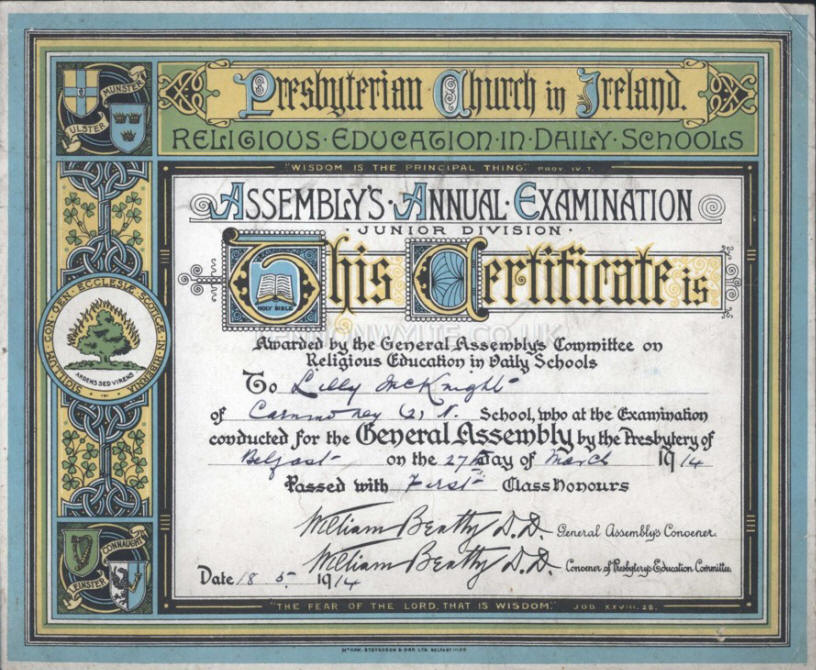 ULSTER MUNSTER
Presbyterian Church in Ireland.
RELIGIOUS·EDUCATION·IN·DAILY·SCHOOLS
"WISDOM IS THE PRINCIPAL THING." PROV. IV. 7.
ASSEMBLY'S·ANNUAL·EXAMINATION
·JUNIOR DIVISION·
This Certificate is
HOLY BIBLE
Awarded by the General Assembly's Committee on
Religious Education in Daily Schools
To Lilly McKnight
of Carnmoney (2) N. School, who at the Examination
conducted for the General Assembly by the Presbytery of
Belfast on the 27th Day of March 1914
Passed with First Class Honours
William Beatty D.D. General Assembly's Convener.
William Beatty D.D. Convener of Presbytery's Education Committee.
Date 18 5 1914
"THE FEAR OF THE LORD, THAT IS WISDOM." JOB. XXVIII. 28.
SIGILLUM CON. GEN. ECCLESIÆ SCOTICÆ IN HIBERNIA
ARDENS SED VIRENS
LEINSTER CONNAUGHT